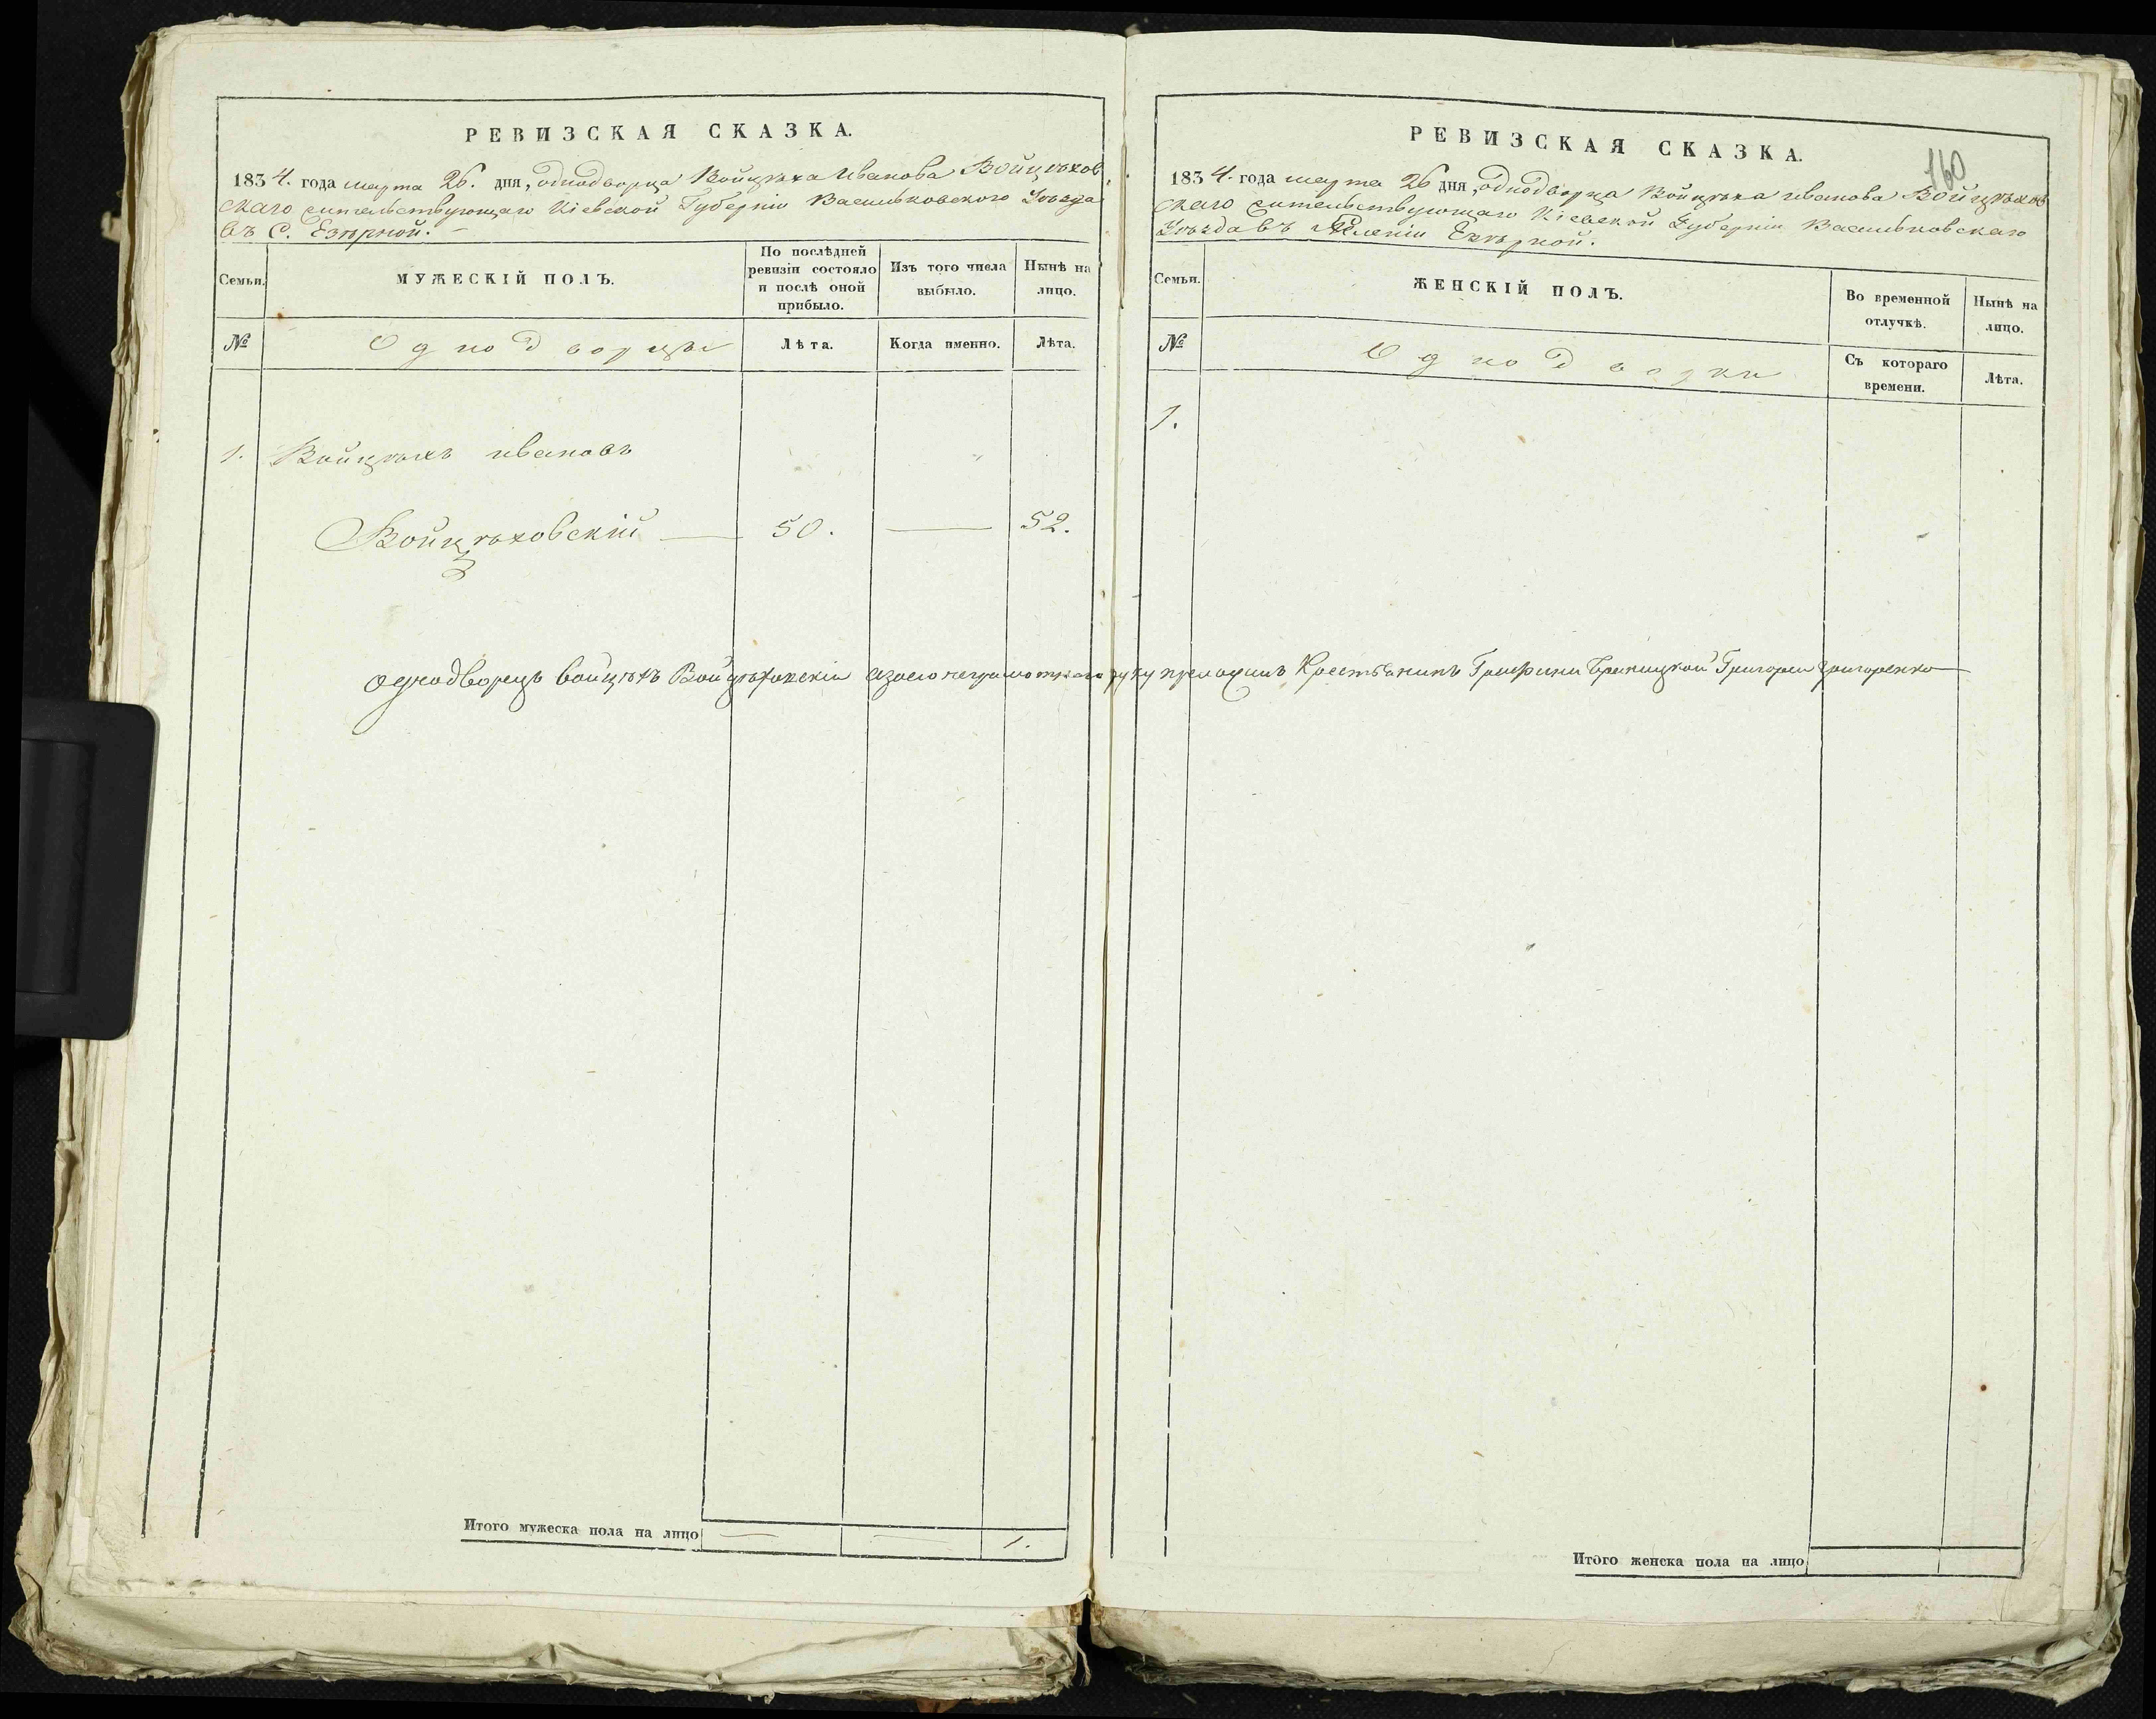 РЕВИЗСКАЯ СКАЗКА.
1834. года марта 26. дня, однодворца Войцѣха Иванова Войцѣхов
скаго жительствующаго Кіевской Губерніи Васильковского Уѣзда
въ С. Езѣрной.
Семьи.
МУЖЕСКІЙ ПОЛЪ.
По послѣдней ревизіи состояло и послѣ оной прибыло.
Изъ того числа выбыло.
Нынѣ на лицо.
№
Однодворцы
Лѣта.
Когда именно.
Лѣта.
1. Войцѣхъ ивановъ
Войцѣховскій — 50. — 52.
однодворецъ войцѣхъ Войцѣховскіи азаего неграмотнаго руку приложилъ Крестьянинъ Графини Браницкой Григореи Григоренко
Итого мужеска пола на лицо — — 1.
160
РЕВИЗСКАЯ СКАЗКА.
1834. года марта 26 дня, однодворца Войцѣха иванова Войцѣхов
скаго жительствующаго Кіевской Губерніи Васильковскаго
Уѣзда въ Селеніи Езѣрной.
Семьи.
ЖЕНСКІЙ ПОЛЪ.
Во временной отлучкѣ.
Нынѣ на лицо.
№
Однодворки
Съ котораго времени.
Лѣта.
1.
Итого женска пола на лицо